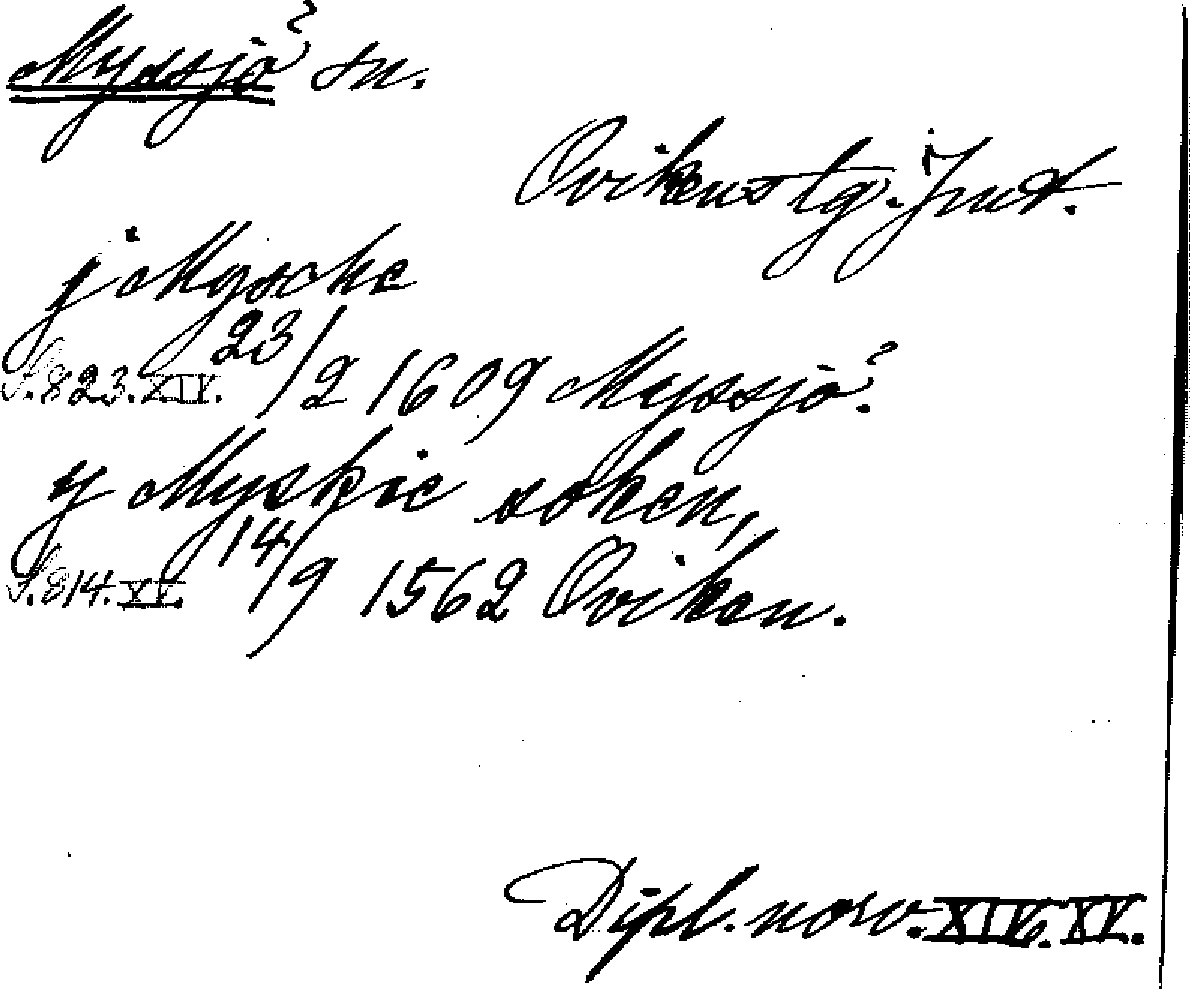 Myssjö sn.
Ovikens tg. Jmt.
j Myscke
S. 823. XIV. 23/2 1609 Myssjö.
y Myskie soken,
S. 814. XV. 14/9 1562 Oviken.
Dipl. norv. XIV. XV.